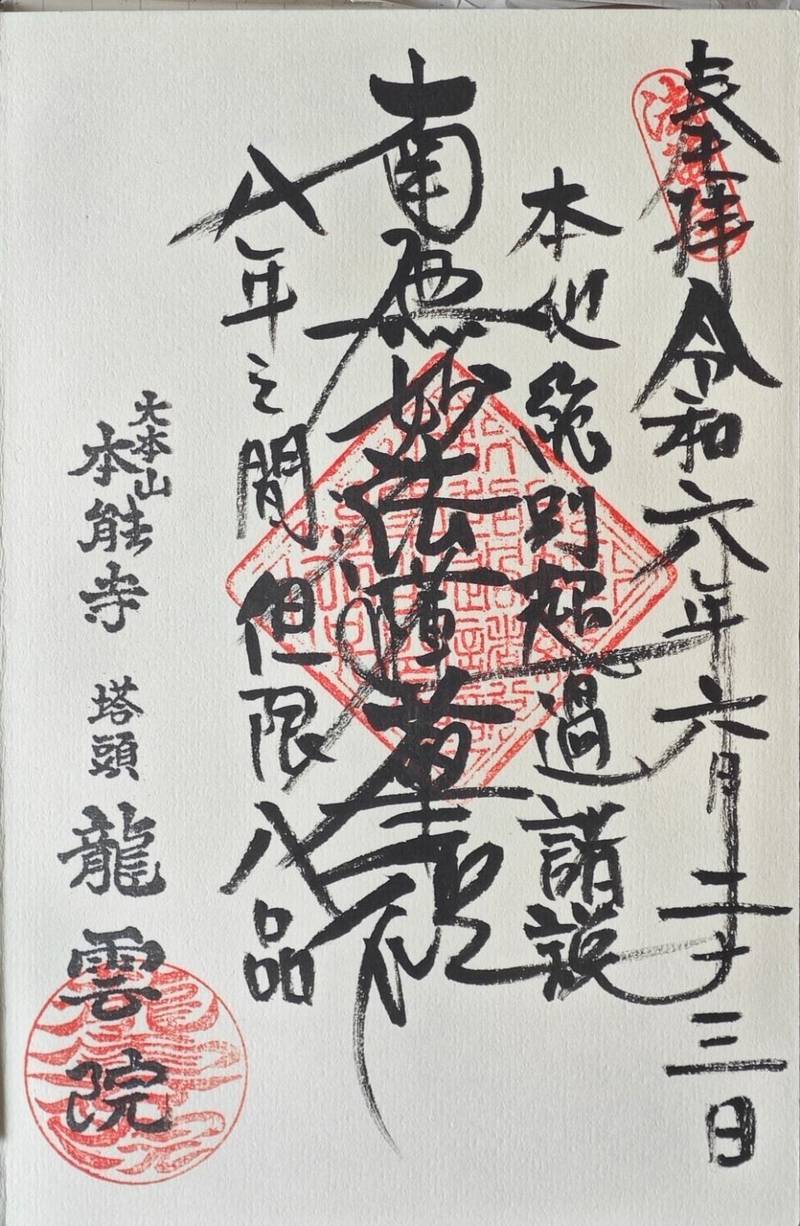 奉拝 令和六年六月二十三日
本地総別超過諸説
南無妙法蓮華経
八年之間但限八品
大本山
本能寺 塔頭 龍雲院